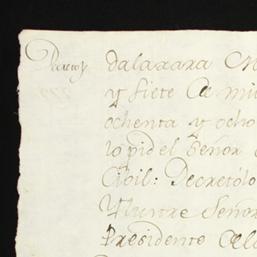 Decreto
dalaxara M
y siete de mi
ochenta y ocho
lo pide el Señor
Civil: Decretólo
Yllustre Señor
Presidente de la